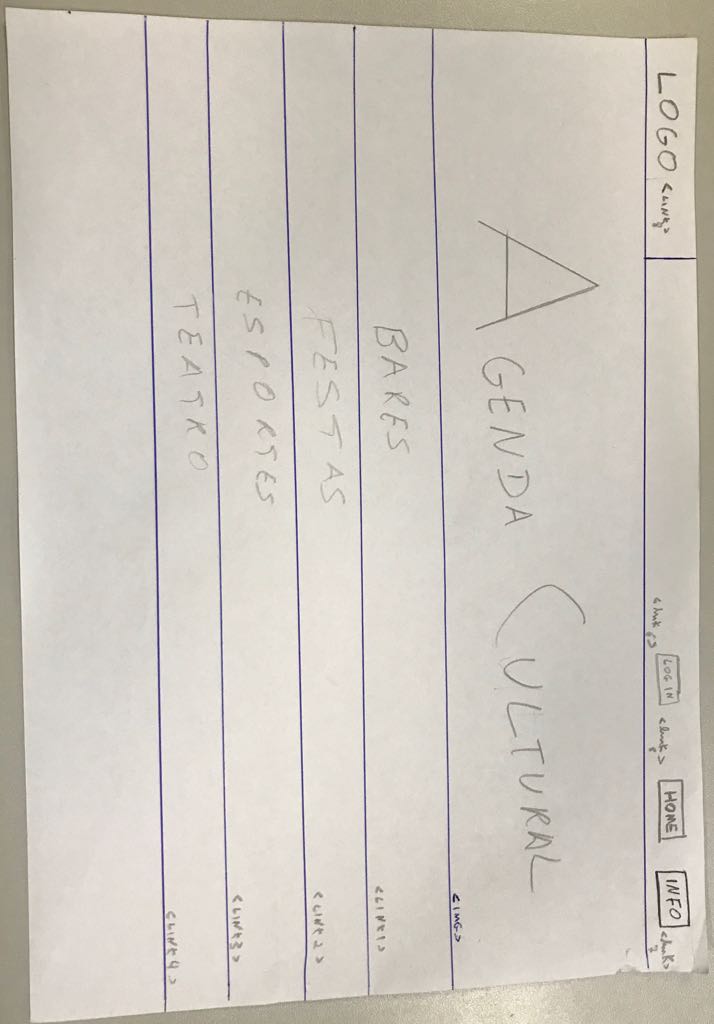 LOGO <LINK 8> <link 6> LOG IN <link 5> HOME INFO <link> 7
AGENDA CULTURAL
<IMG>
BARES
<LINK1>
FESTAS
<LINK2>
ESPORTES
<LINK3>
TEATRO
<LINK4>